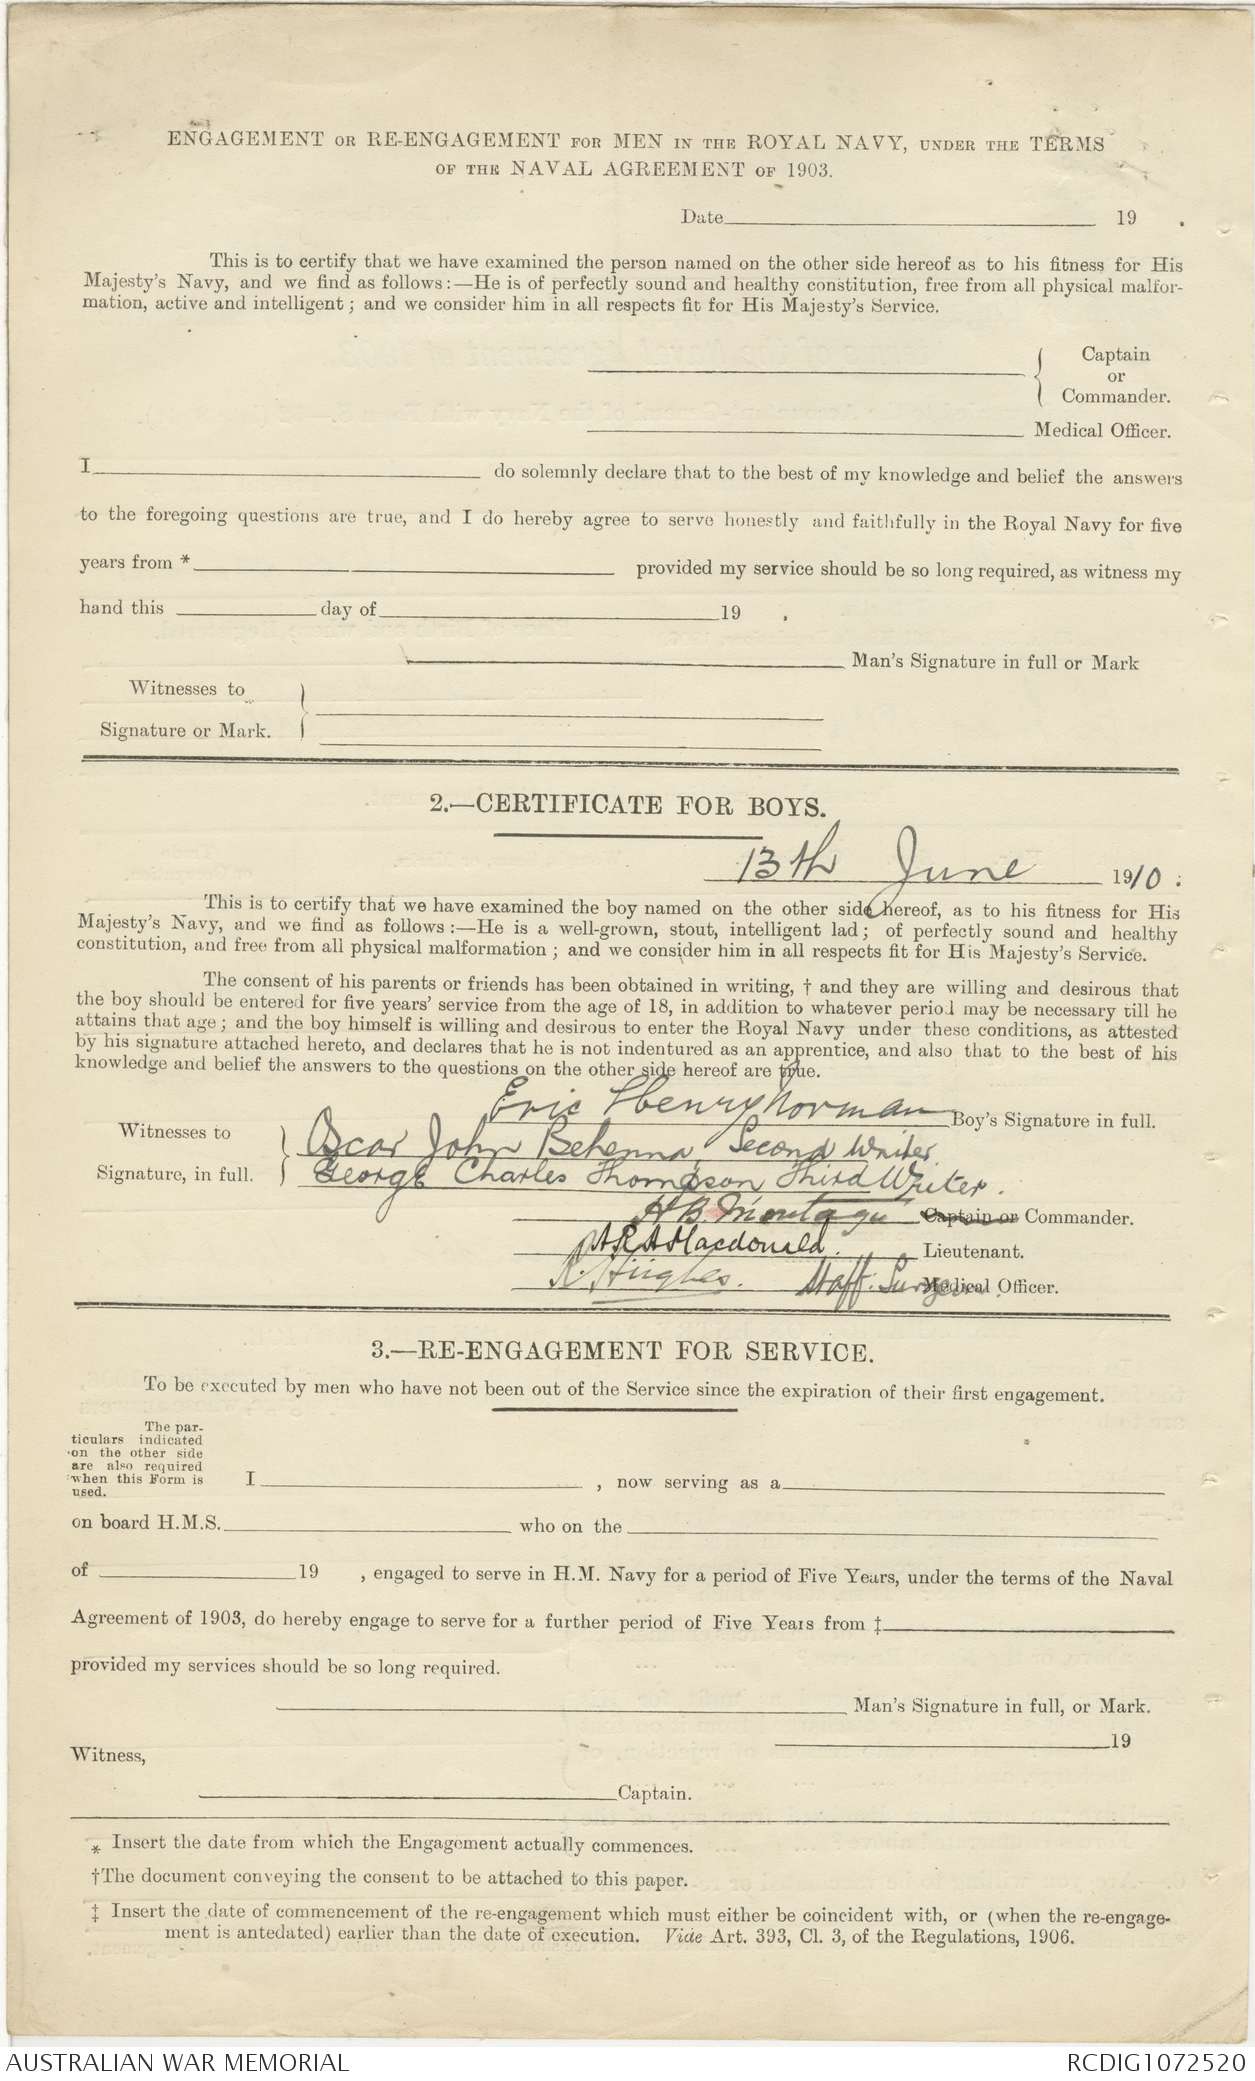 ENGAGEMENT OR RE-ENGAGEMENT FOR MEN IN THE ROYAL NAVY, UNDER THE TERMS
OF THE NAVAL AGREEMENT OF 1903.
Date 19 .
This is to certify that we have examined the person named on the other side hereof as to his fitness for His
Majesty's Navy, and we find as follows:—He is of perfectly sound and healthy constitution, free from all physical malfor-
mation, active and intelligent; and we consider him in all respects fit for His Majesty's Service.
Captain
or
Commander.
Medical Officer.
I do solemnly declare that to the best of my knowledge and belief the answers
to the foregoing questions are true, and I do hereby agree to serve honestly and faithfully in the Royal Navy for five
years from * provided my service should be so long required, as witness my
hand this day of 19 .
Man's Signature in full or Mark
Witnesses to
Signature or Mark.
2.—CERTIFICATE FOR BOYS.
13th June 1910.
This is to certify that we have examined the boy named on the other side hereof, as to his fitness for His
Majesty's Navy, and we find as follows:—He is a well-grown, stout, intelligent lad; of perfectly sound and healthy
constitution, and free from all physical malformation; and we consider him in all respects fit for His Majesty's Service.
The consent of his parents or friends has been obtained in writing, † and they are willing and desirous that
the boy should be entered for five years' service from the age of 18, in addition to whatever period may be necessary till he
attains that age; and the boy himself is willing and desirous to enter the Royal Navy under these conditions, as attested
by his signature attached hereto, and declares that he is not indentured as an apprentice, and also that to the best of his
knowledge and belief the answers to the questions on the other side hereof are true.
Eric Henry Norman Boy's Signature in full.
Witnesses to Oscar John Behenna, Second Writer.
Signature, in full. George Charles Thompson Third Writer.
H B. Montagu Captain or Commander.
A R A Macdonald. Lieutenant.
Hughes. Staff Surgeon. Medical Officer.
3.—RE-ENGAGEMENT FOR SERVICE.
To be executed by men who have not been out of the Service since the expiration of their first engagement.
The par-
ticulars indicated
on the other side
are also required
when this Form is
used.
I , now serving as a
on board H.M.S. who on the
of 19 , engaged to serve in H.M. Navy for a period of Five Years, under the terms of the Naval
Agreement of 1903, do hereby engage to serve for a further period of Five Years from ‡
provided my services should be so long required.
Man's Signature in full, or Mark.
19
Witness,
Captain.
* Insert the date from which the Engagement actually commences.
†The document conveying the consent to be attached to this paper.
‡ Insert the date of commencement of the re-engagement which must either be coincident with, or (when the re-engage-
ment is antedated) earlier than the date of execution. Vide Art. 393, Cl. 3, of the Regulations, 1906.
AUSTRALIAN WAR MEMORIAL
RCDIG1072520